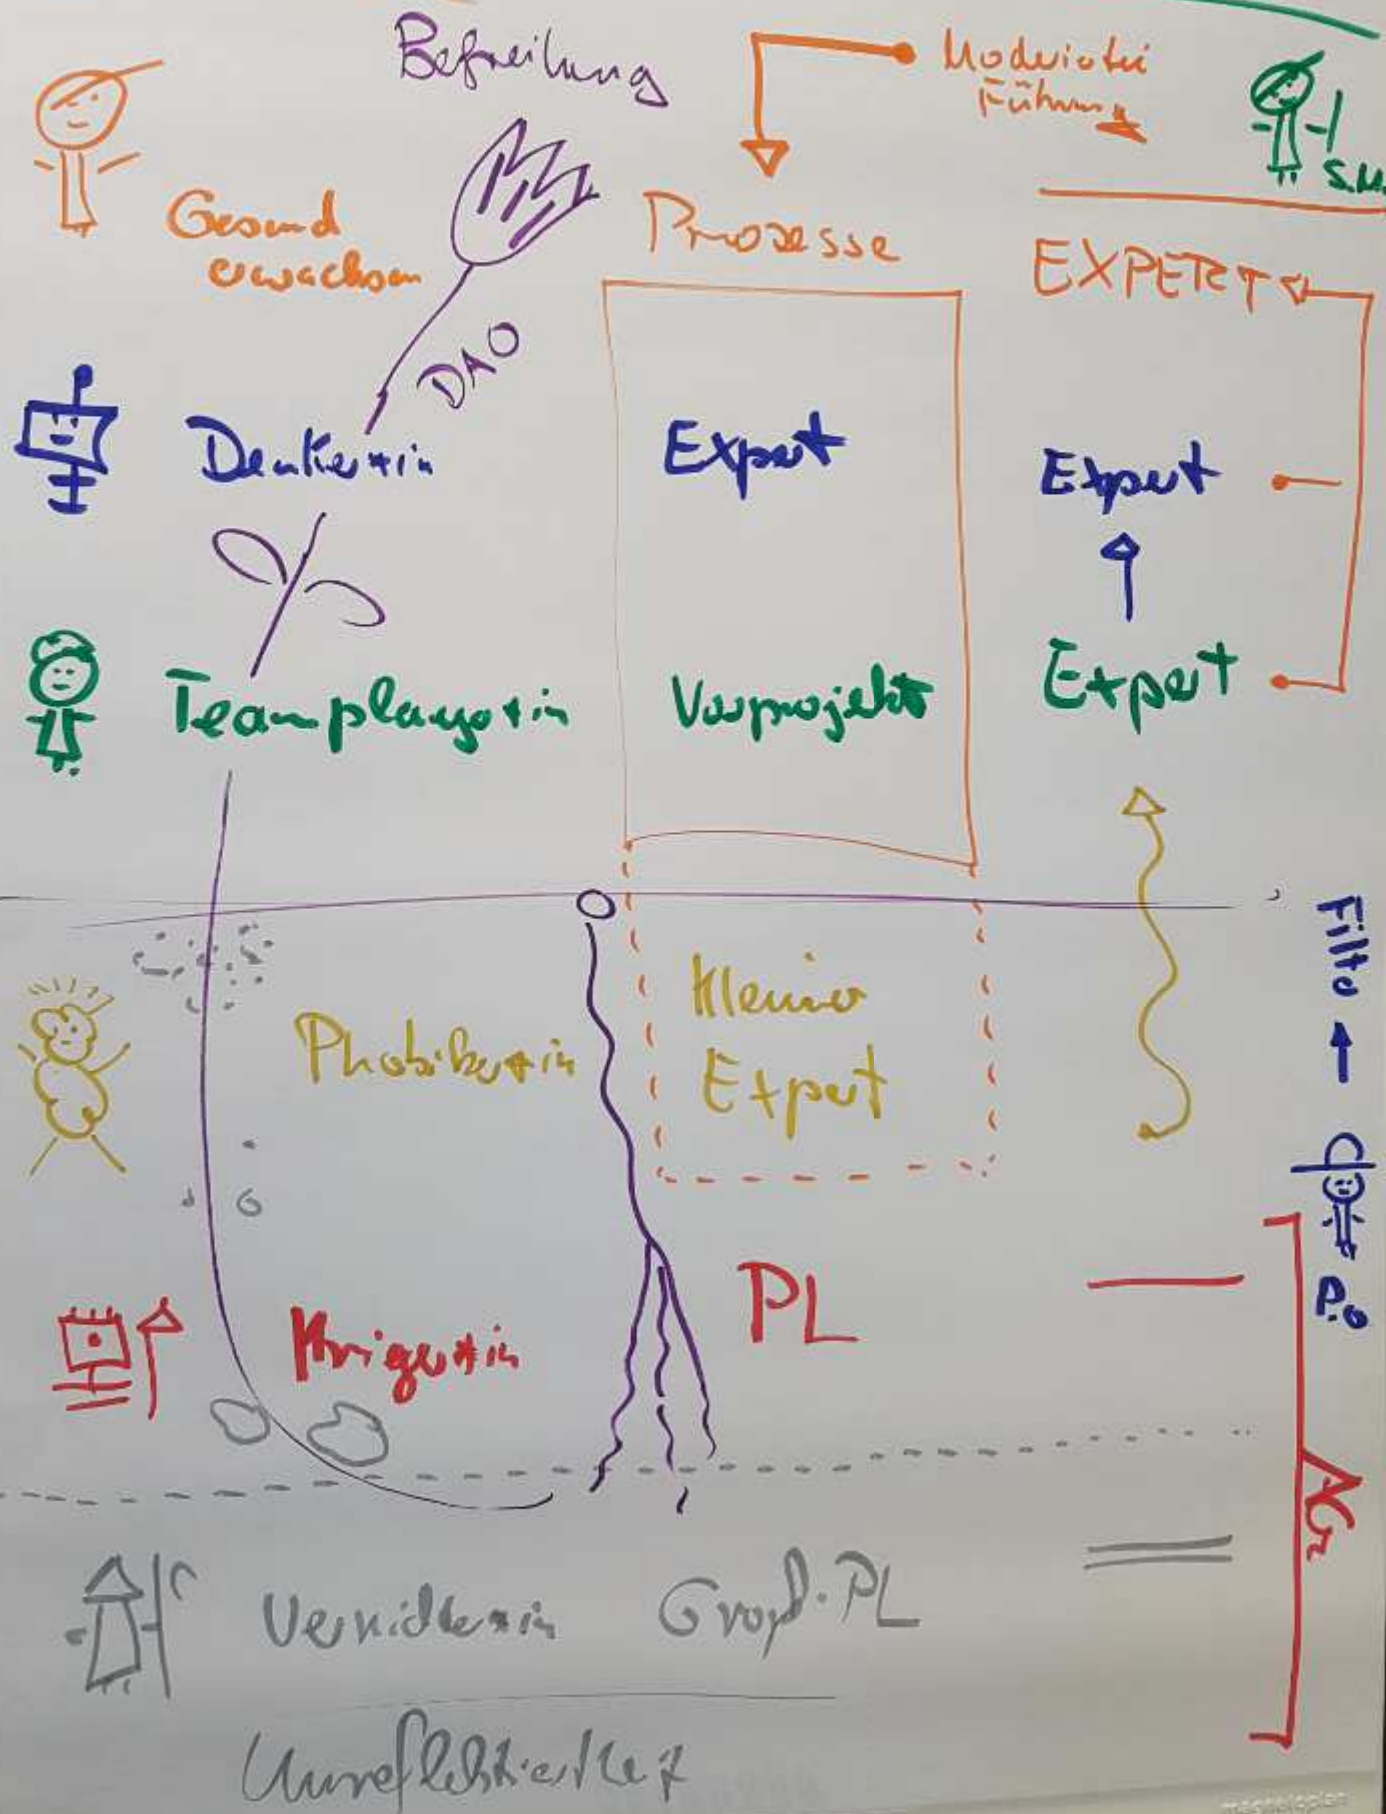 Befreihung
Moderiatri
Führung
S.M.
Gesund
erwachsen
Prozesse
EXPERT
DAO
Denker*in
Expert
Expert
Teamplayer*in
Vorprojekt
Expert
Filter
Phobiker*in
Kleiner
Expert
P.O
Kriger*in
PL
AG
Vernichter*in
Groß-PL
Unreflektiertheit